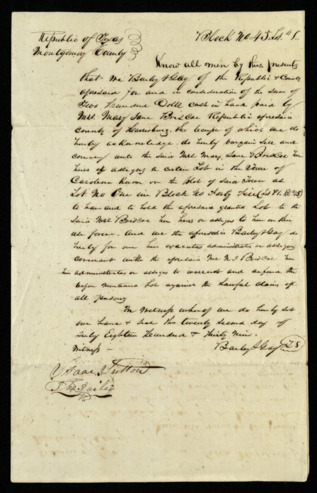 Republic of Texas Block No 43 Lot 1.
Montgomery County
Know all men by these presents
that We Baily & Gay of the Republic & County
aforesaid for and in consideration of the sum of
Five Hundred Dolls cash in hand paid by
Mrs. Mary Jane Briscoe Republic aforesaid
County of Harrisburg the receipt of which we do
hereby acknowledge do hereby bargain sell and
convey unto the said Mrs Mary Jane Briscoe her
heirs & assigns a certain Lot in the Town of
Carolina known on the plot of said Town as
Lot No One in Block No Forty
to have and to hold the aforesaid granted Lot to the
said Mrs Briscoe her heirs or assigns to him or them
all forever. And we the aforesaid Baily & Gay do
hereby for our heirs executors administrators or assigns
covenant with the aforesaid Mrs M J Briscoe her
heirs administrators or assigns to warrant and defend the
above mentioned Lot against the lawful claims of
all persons
In witness whereof we do hereby set
our hands & seal this twenty second day of
July Eighteen Hundred & thirty nine.
Witness Baily & Gay LS
Isaac